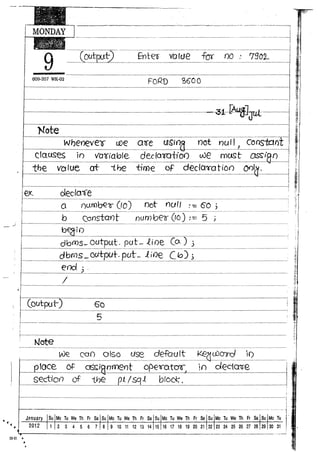 MONDAY
9
(output) Enter value for no : 7902
009-357 WK-02
FORD 3600
— 31 [Aug] Jul
Note
Whenever we are using not null, constant
clauses in variable declaration we must assign
the value at the time of declaration only.
ex. declare
a number (10) not null := 60 ;
b constant number (10) := 5 ;
begin
dbms_output. put_ line (a) ;
dbms_output. put_ line (b) ;
end ;
/
(output) 60
5
Note
we can also use default keyword in
place of assignment operator, in declare
section of the pl/sql block.
January Su Mo Tu We Th Fr Sa Su Mo Tu We Th Fr Sa Su Mo Tu We Th Fr Sa Su Mo Tu We Th Fr Sa Su Mo Tu
2012 1 2 3 4 5 6 7 8 9 10 11 12 13 14 15 16 17 18 19 20 21 22 23 24 25 26 27 28 29 30 31